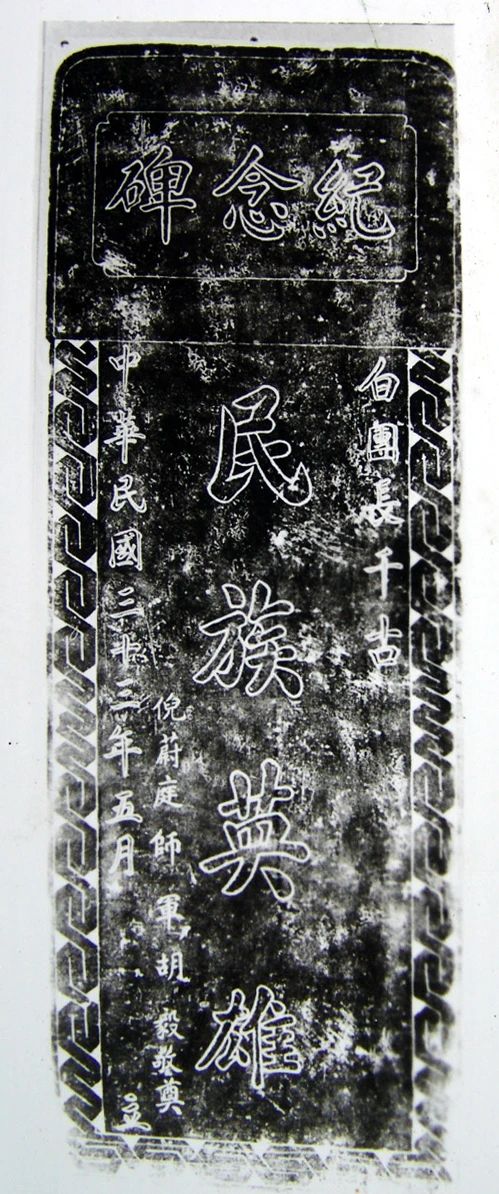 紀念碑
白團長千古
民族英雄
倪蔚庭師軍胡毅敬奠
中華民國三十三年五月立